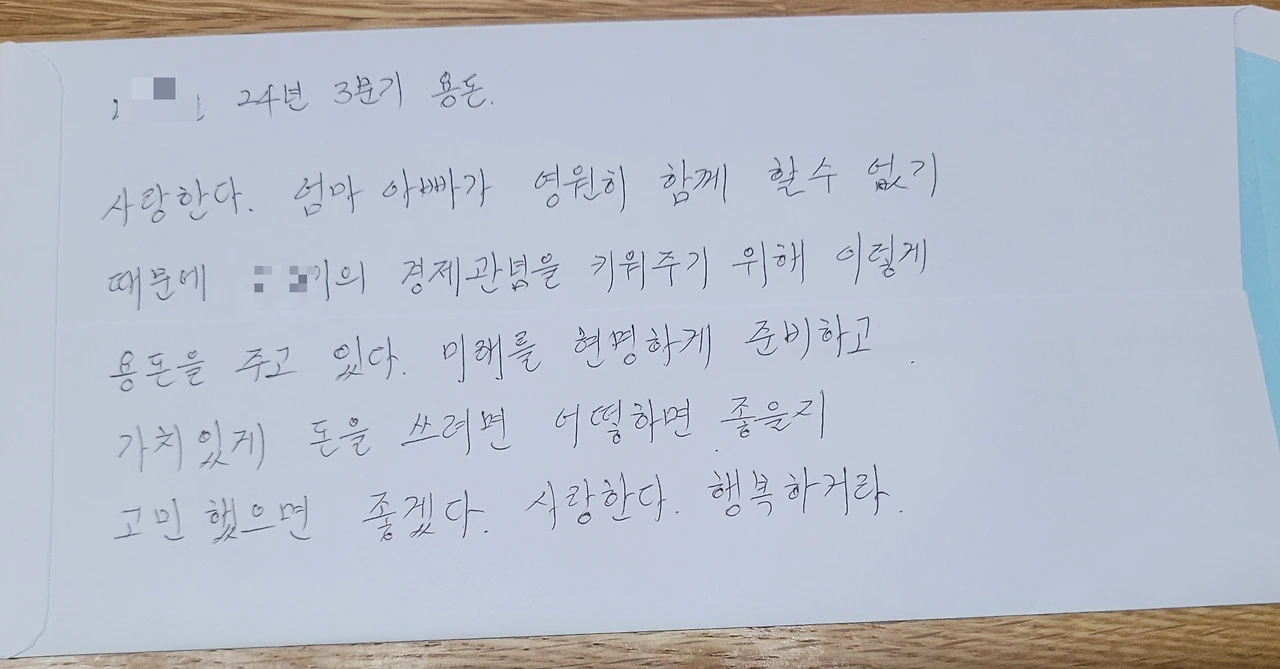 24년 3분기 용돈.
사랑한다. 엄마 아빠가 영원히 함께 할수 없기
때문에 의 경제관념을 키워주기 위해 이렇게
용돈을 주고 있다. 미래를 현명하게 준비하고
가치있게 돈을 쓰려면 어떻하면 좋을지
고민 했으면 좋겠다. 사랑한다. 행복하거라.